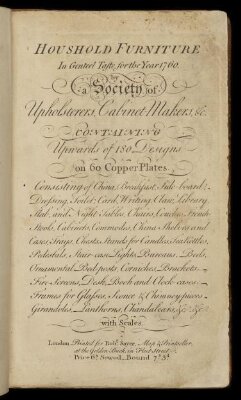 HOUSHOLD FURNITURE
In Genteel Taste for the Year 1760.
by
a Society of
Upholsterers, Cabinet-Makers, &c.
CONTAINING
Upwards of 180 Designs
on 60 Copper Plates.
Consisting of China, Breakfast, Side-board,
Dressing, Toilet, Card, Writing, Claw, Library,
Slab, and Night Tables, Chairs, Couches, French
Stools, Cabinets, Commodes, China Shelves and
Cases, Trays, Chests, Stands for Candles, Tea Kettles,
Pedestals, Stair-case Lights, Bureaus, Beds,
Ornamental Bed-posts, Corniches, Brackets,
Fire-Screens, Desk, Book and Clock-cases,
Frames for Glasses, Sconce & Chimney-pieces,
Girandoles, Lanthorns, Chandalears, &c. &c.
with Scales.
London Printed for Robt. Sayer, Map & Printseller,
at the Golden Buck, in Fleet Street.
Price 6s. Sewed, Bound 7s.